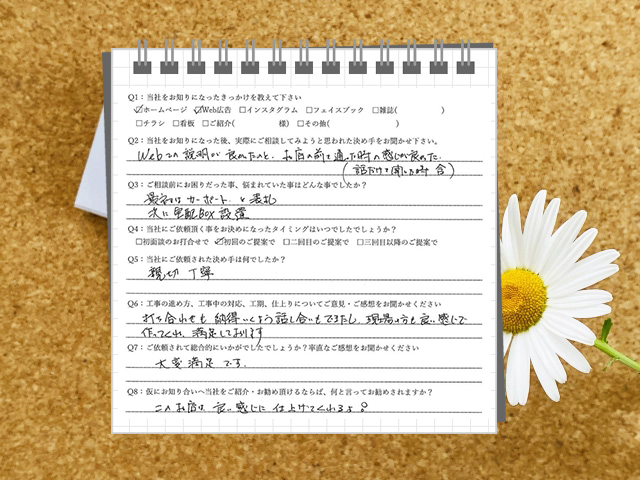 Q1：当社をお知りになったきっかけを教えて下さい
☑ホームページ ☑Web広告 □インスタグラム □フェイスブック □雑誌( )
□チラシ □看板 □ご紹介( 様) □その他( )
Q2：当社をお知りになった後、実際にご相談してみようと思われた決め手をお聞かせ下さい。
Webでの説明が良かったのと、お店の前を通った時の感じが良かった。
(話だけを聞いた時 含)
Q3：ご相談前にお困りだった事、悩まれていた事はどんな事でしたか？
最初はカーポート と表札
次に宅配BOX設置
Q4：当社にご依頼頂く事をお決めになったタイミングはいつでしたでしょうか？
□初面談のお打合せで ☑初回のご提案で □二回目のご提案で □三回目以降のご提案で
Q5：当社にご依頼された決め手は何でしたか？
親切 丁寧
Q6：工事の進め方、工事中の対応、工期、仕上りについてご意見・ご感想をお聞かせください
打ち合わせも 納得いくよう話し合いもできたし、現場の方も良い感じで
作ってくれ、満足しております
Q7：ご依頼されて総合的にいかがでしたでしょうか？率直なご感想をお聞かせください
大変満足です.
Q8：仮にお知り合いへ当社をご紹介・お勧め頂けるならば、何と言ってお勧めされますか？
このお店は 良い感じに 仕上げてくれるよ？